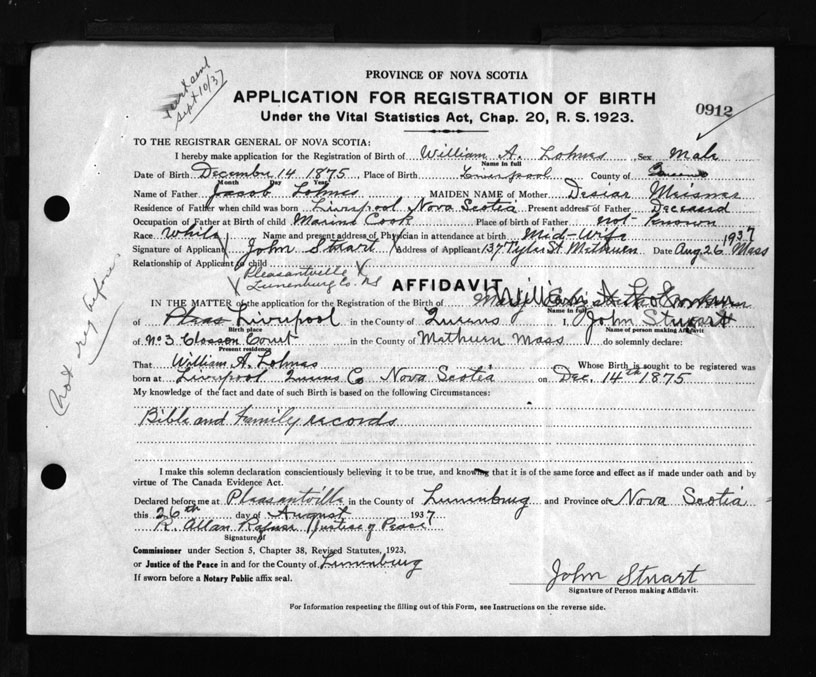 Sept 10/37
PROVINCE OF NOVA SCOTIA
APPLICATION FOR REGISTRATION OF BIRTH
0912
Under the Vital Statistics Act, Chap. 20, R. S. 1923.
TO THE REGISTRAR GENERAL OF NOVA SCOTIA:
I hereby make application for the Registration of Birth of William A. Lohnes Sex Male
Name in full
Date of Birth December 14 1875 Place of Birth Liverpool County of Queens
Month Day Year
Name of Father Jacob Lohnes MAIDEN NAME of Mother Desiar Meisner
Residence of Father when child was born Liverpool Nova Scotia Present address of Father Deceased
Occupation of Father at Birth of child Marine Cook Place of Birth of Father not known
Race White Name and present address of Physician in attendance at birth Mid-Wife
Signature of Applicant John Stuart Address of Applicant 137 Tyler St Methuen Date Aug 26 1937 Mass
Relationship of Applicant to child
Pleasantville
Lunenburg Co. NS
AFFIDAVIT
IN THE MATTER of the application for the Registration of the Birth of
Name in full
of Liverpool in the County of Queens I, John Stuart
Birth place Name of person making Affidavit
of No 3 Closson Court in the County of Methuen Mass do solemnly declare:
Present residence
That William A. Lohnes Whose Birth is sought to be registered was
born at Liverpool Queens Co Nova Scotia on Dec. 14th 1875
My knowledge of the fact and date of such Birth is based on the following Circumstances:
Bible and family records
not reg before
I make this solemn declaration conscientiously believing it to be true, and knowing that it is of the same force and effect as if made under oath and by
virtue of The Canada Evidence Act.
Declared before me at Pleasantville in the County of Lunenburg and Province of Nova Scotia
this 26th day of August 1937
R. Allan Justice of Peace
Signature of
Commissioner under Section 5, Chapter 38, Revised Statutes, 1923,
or Justice of the Peace in and for the County of Lunenburg
If sworn before a Notary Public affix seal.
John Stuart
Signature of Person making Affidavit.
For Information respecting the filling out of this Form, see Instructions on the reverse side.